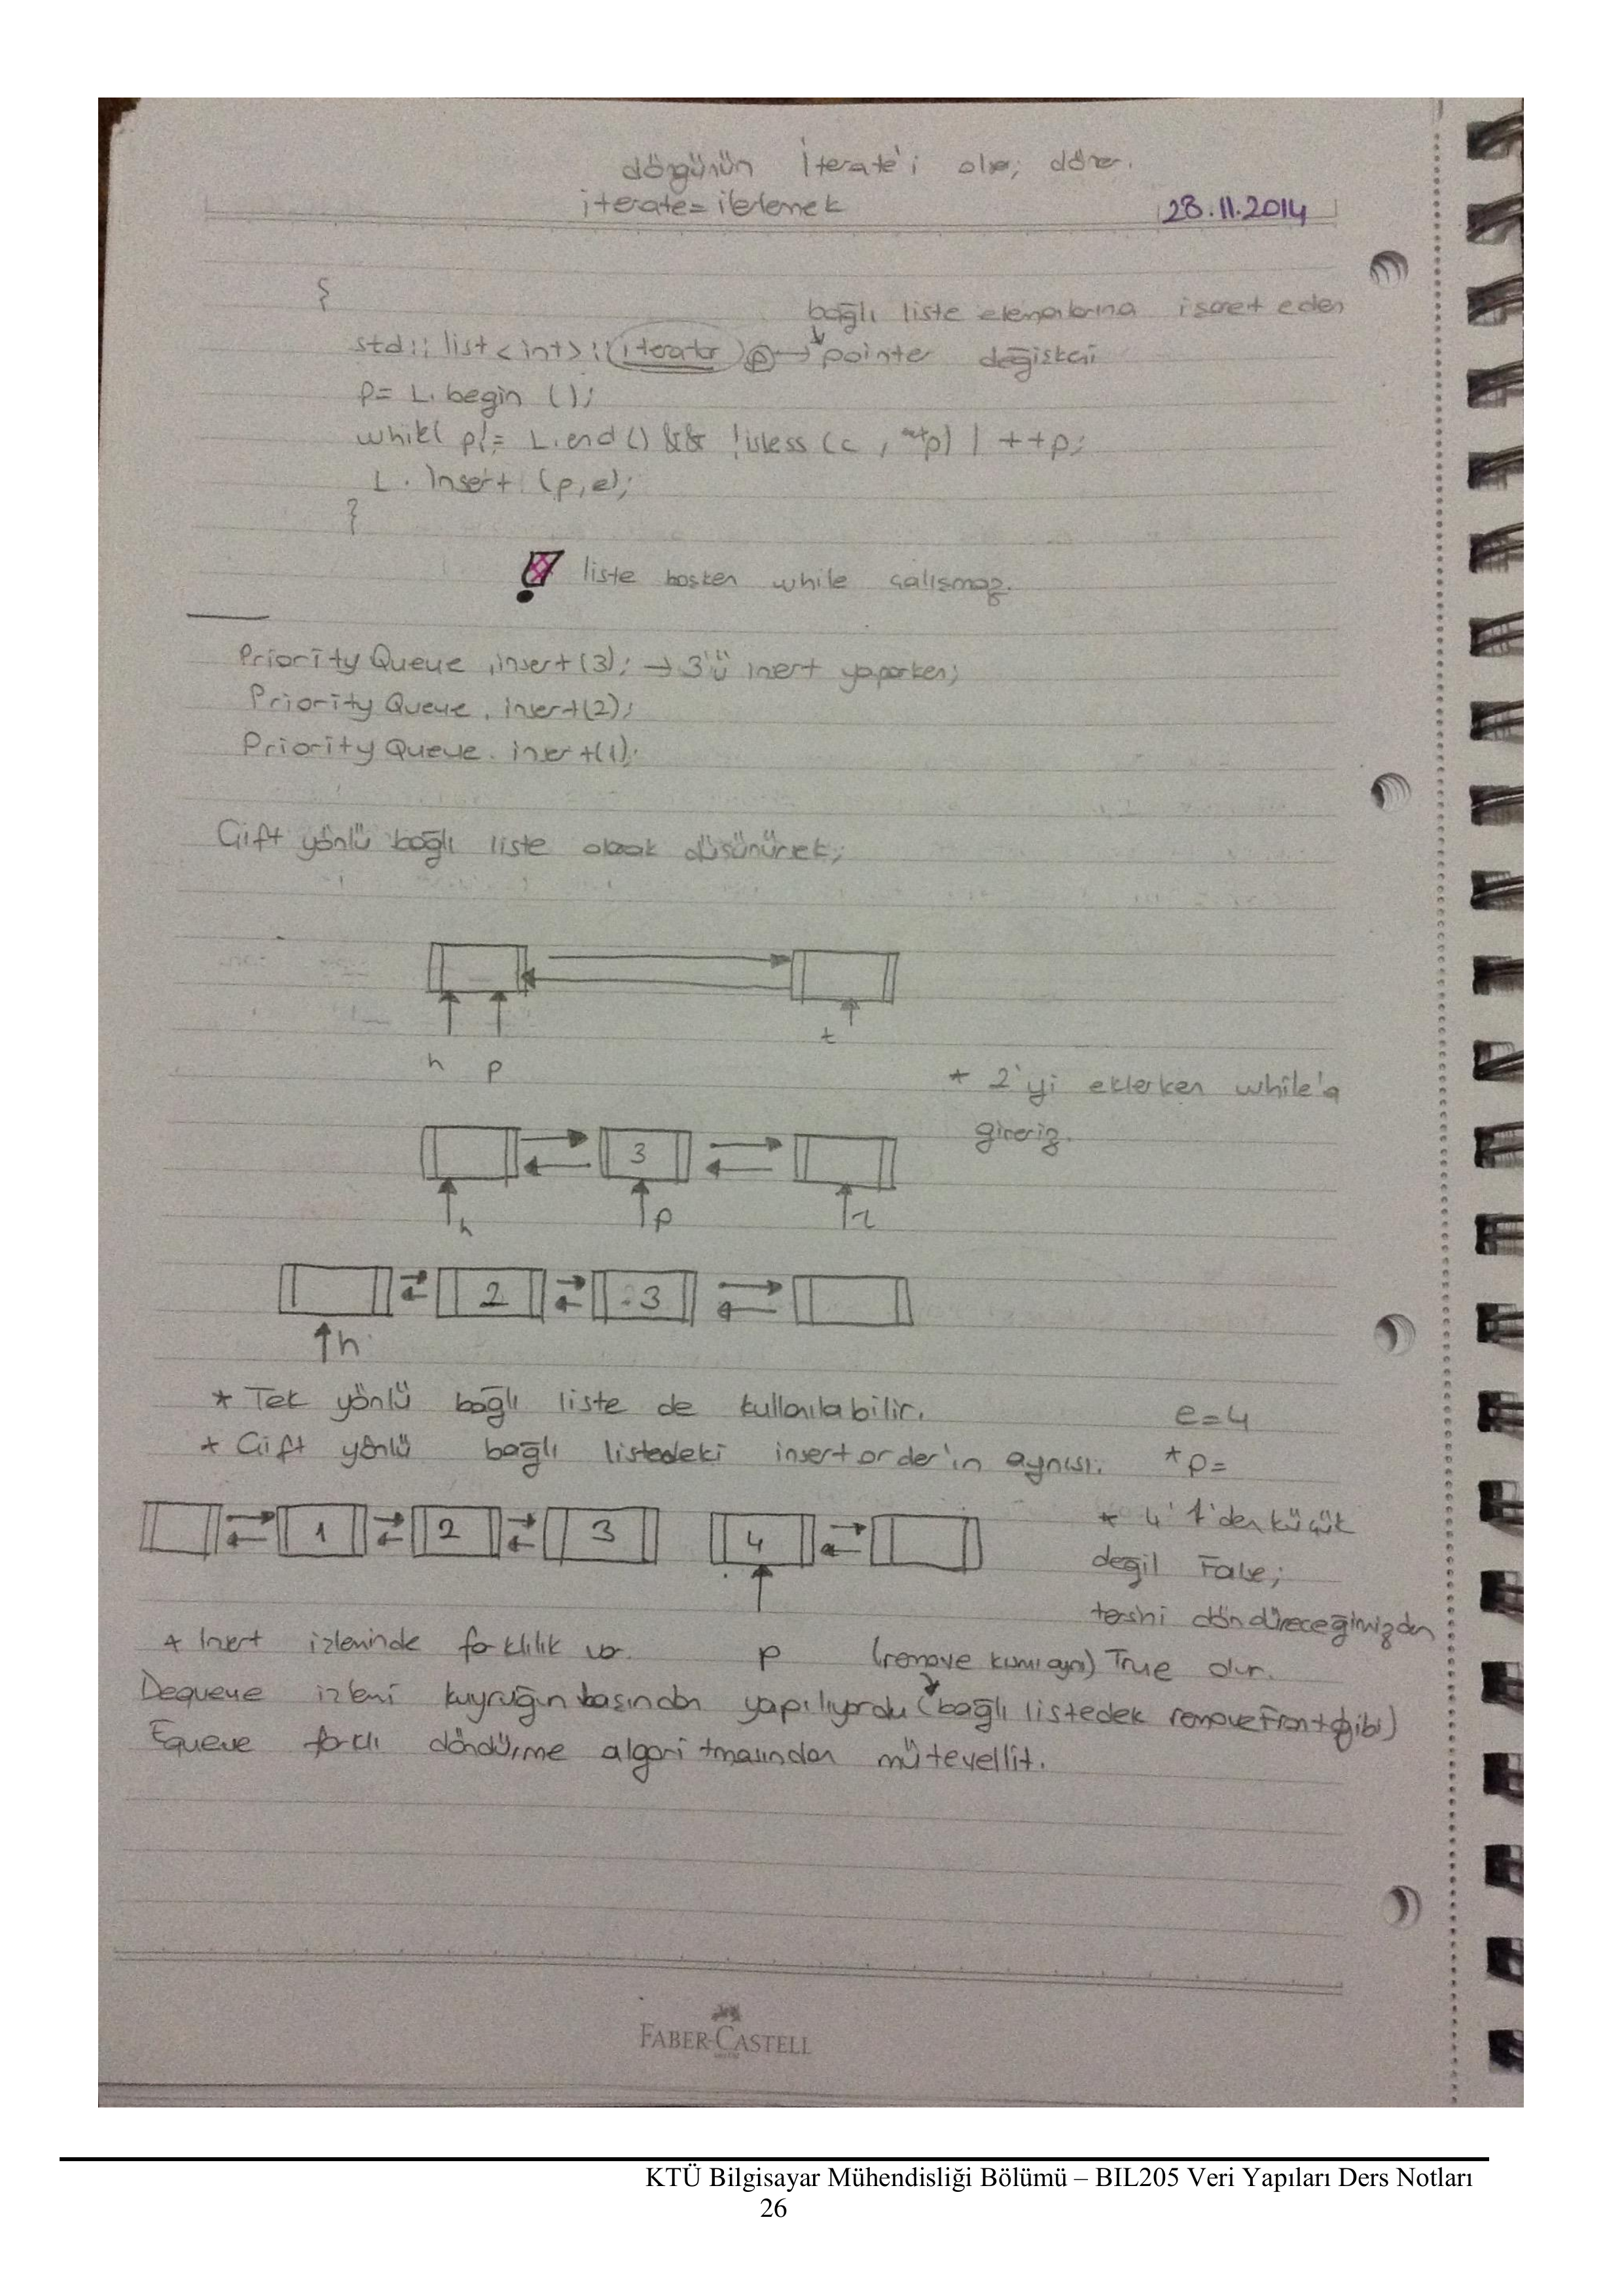 döngünün İterate'i olur; döner.
iterate = ilerlemek
28.11.2014
{
bağlı liste elemanlarına işaret eden
std:: list <int> :: iterator p → pointer değişkeni
p= L. begin ();
while( p!= L.end() && !isless (e , *p) ) ++p;
L. Insert (p,e);
}
! liste boşken while çalışmaz.
Priority Queue .insert(3); → 3'ü insert yaparken;
Priority Queue . insert(2);
Priority Queue . insert(1);
Çift yönlü bağlı liste olarak düşünürsek;
h p t
* 2'yi eklerken while'a
gireriz.
3
h p t
2 3
h
* Tek yönlü bağlı liste de kullanılabilir.
e=4
* Çift yönlü bağlı listedeki insertorder'in aynısı.
*p=
1 2 3 4
* 4 1'den küçük
değil False;
tersini döndüreceğimizden
* Insert işleminde farklılık var.
p
(remove kısmı aynı) True olur.
Dequeue işlemi kuyruğun başından yapılıyordu (bağlı listedek removeFront gibi)
Equeue farklı döndürme algoritmasından mütevellit.
FABER-CASTELL
KTÜ Bilgisayar Mühendisliği Bölümü – BIL205 Veri Yapıları Ders Notları
26